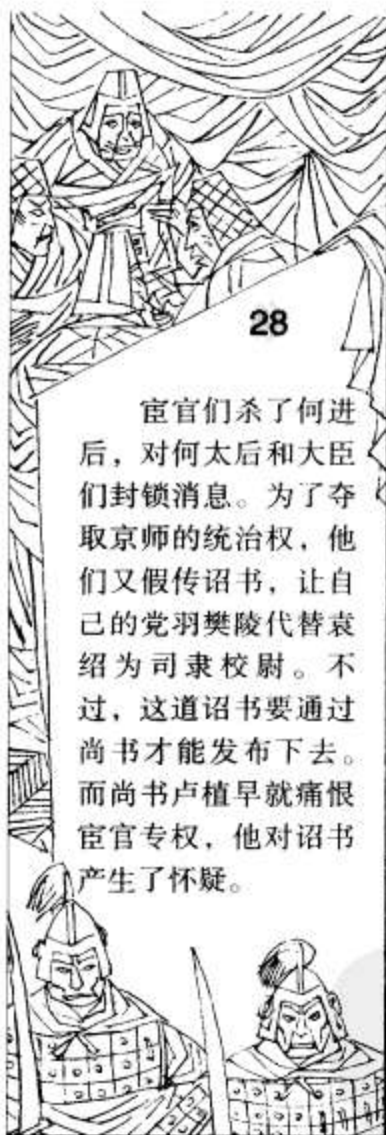 28
宦官们杀了何进
后，对何太后和大臣
们封锁消息。为了夺
取京师的统治权，他
们又假传诏书，让自
己的党羽樊陵代替袁
绍为司隶校尉。不
过，这道诏书要通过
尚书才能发布下去。
而尚书卢植早就痛恨
宦官专权，他对诏书
产生了怀疑。